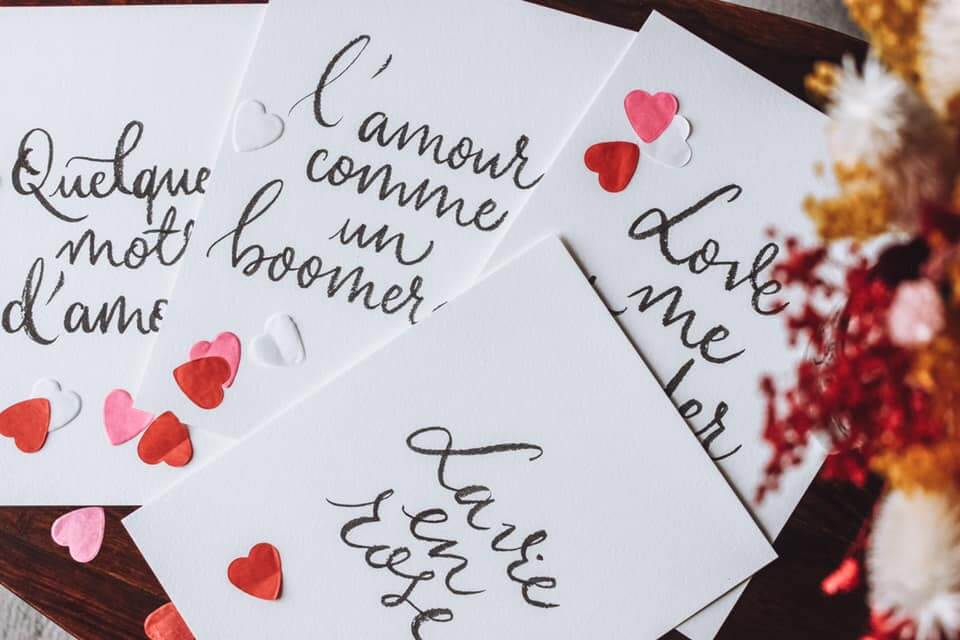 Quelque
mot
d'am
l'amour
comme
un
boomer
Love
me
der
La vie
en
rose